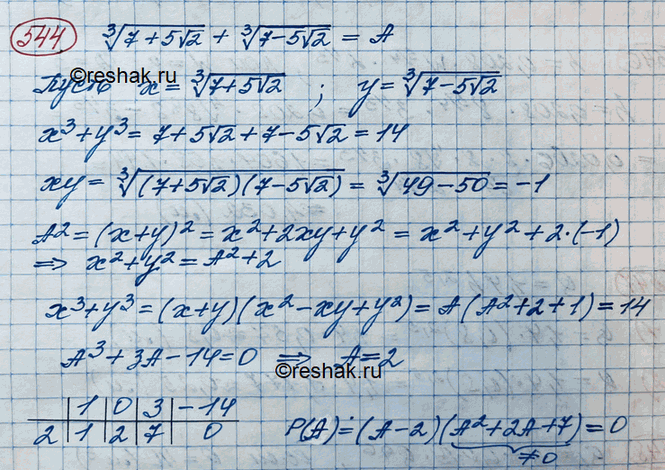 544 ∛(7+5√2) + ∛(7-5√2) = A
©reshak.ru
Пусть x = ∛(7+5√2) ; y = ∛(7-5√2)
x³+y³ = 7+5√2+7-5√2 = 14
xy = ∛((7+5√2)(7-5√2)) = ∛(49-50) = -1
A² = (x+y)² = x²+2xy+y² = x²+y²+2·(-1)
⇒ x²+y² = A²+2
x³+y³ = (x+y)(x²-xy+y²) = A(A²+2+1) = 14
A³+3A-14=0 ⇒ A=2
©reshak.ru
| 1 | 0 | 3 | -14
2 | 1 | 2 | 7 | 0
P(A) = (A-2)(A²+2A+7) = 0
≠0